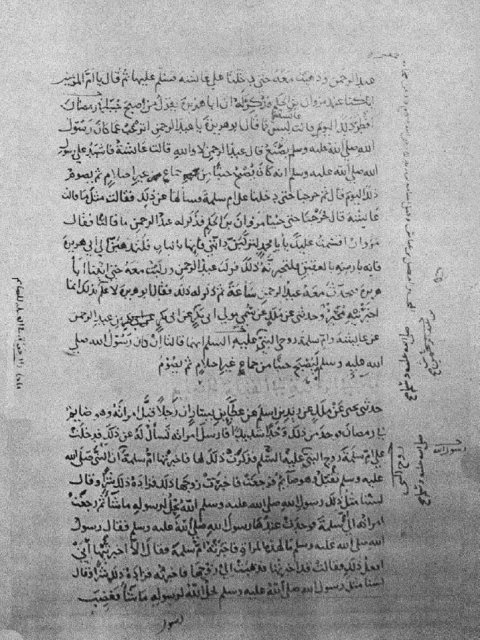 عبد الرحمن وذهبت معه حتى دخلنا على عائشة فسلم عليها ثم قال يا ام المؤمنين
انا كنا عند مروان بن الحكم فذكر له ان ابا هريرة يقول من اصبح جنبا في رمضان
افطر ذلك اليوم قالت ليس كما قال ابو هريرة يا عبد الرحمن اترغب عما كان رسول
الله صلى الله عليه وسلم يصنع قال عبد الرحمن لا والله قالت عائشة فاشهد على رسول
الله صلى الله عليه وسلم انه كان يصبح جنبا من جماع غير احتلام ثم يصوم
ذلك اليوم قال ثم خرجنا حتى دخلنا على ام سلمة فسألها عن ذلك فقالت مثل ما قالت
عائشة قال فخرجنا حتى جئنا مروان بن الحكم فذكر له عبد الرحمن ما قالتا فقال
مروان اقسمت عليك يا ابا محمد لتركبن دابتي فانها بالباب فلتذهبن الى ابي هريرة
فانه بارضه بالعقيق فلتخبرنه ذلك فركب عبد الرحمن وركبت معه حتى اتينا ابا
هريرة فتحدث معه عبد الرحمن ساعة ثم ذكر له ذلك فقال ابو هريرة لا علم لي بذلك انما
اخبرنيه مخبر وحدثني عن ملك عن سمي مولى ابي بكر عن ابي بكر بن عبد الرحمن
عن عائشة وام سلمة زوجي النبي عليه السلم انهما قالتا ان كان رسول الله صلى
الله عليه وسلم ليصبح جنبا من جماع غير احتلام ثم يصوم
حدثني يحيى عن ملك عن زيد بن اسلم عن عطاء بن يسار ان رجلا قبل امراته وهو صائم
في رمضان فوجد من ذلك وجدا شديدا فارسل امراته تسأل له عن ذلك فدخلت
على ام سلمة زوج النبي عليه السلم فذكرت ذلك لها فاخبرتها ام سلمة ان النبي صلى الله
عليه وسلم يقبل وهو صائم فرجعت فاخبرت زوجها بذلك فزاده ذلك شرا وقال
لسنا مثل رسول الله صلى الله عليه وسلم الله يحل لرسوله ما شاء ثم رجعت
امراته الى ام سلمة فوجدت عندها رسول الله صلى الله عليه وسلم فقال رسول
الله صلى الله عليه وسلم ما لهذه المراة فاخبرته ام سلمة فقال الا اخبرتيها اني
افعل ذلك فقالت قد اخبرتها فذهبت الى زوجها فاخبرته فزاده ذلك شرا وقال
لسنا مثل رسول الله صلى الله عليه وسلم يحل الله لرسوله ما شاء فغضب
رسول